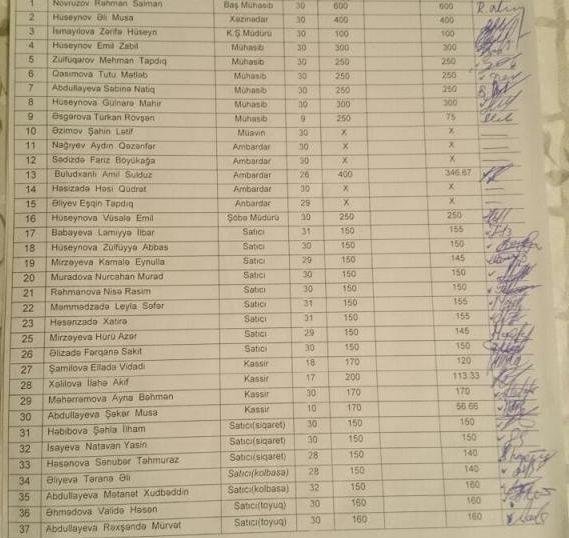 1 Novruzov Rəhman Salman Baş Mühasib 30 600 600
2 Hüseynov Əli Musa Xəzinədar 30 400 400
3 İsmayılova Zərifə Hüseyn K.Ş.Müdürü 30 100 100
4 Hüseynov Emil Zabil Mühasib 30 300 300
5 Zülfüqarov Mehman Tapdıq Mühasib 30 250 250
6 Qasımova Tutu Mətləb Mühasib 30 250 250
7 Abdullayeva Səbinə Natiq Mühasib 30 250 250
8 Hüseynova Gülnarə Mahir Mühasib 30 300 300
9 Əsgərova Türkan Rövşən Mühasib 9 250 75
10 Əzimov Şahin Lətif Müavin 30 X X
11 Nağıyev Aydın Qəzənfər Ambardar 30 X X
12 Sədizdə Fariz Böyükağa Ambardar 30 X X
13 Buludxanlı Amil Sulduz Ambardar 26 400 346.67
14 Həsizadə Həsi Qüdrət Ambardar 30 X X
15 Əliyev Eşqin Tapdıq Anbardar 29 X X
16 Hüseynova Vüsalə Emil Şöbə Müdürü 30 250 250
17 Babayeva Ləmiyyə İlbar Satıcı 31 150 155
18 Hüseynova Zülfüyyə Abbas Satıcı 30 150 150
19 Mirzəyeva Kəmalə Eynulla Satıcı 29 150 145
20 Muradova Nurcahan Murad Satıcı 30 150 150
21 Rəhmanova Nisə Rasim Satıcı 30 150 150
22 Məmmədzadə Leyla Səfər Satıcı 31 150 155
23 Həsənzadə Xatirə Satıcı 31 150 155
25 Mirzəyeva Hürü Azər Satıcı 29 150 145
26 Əlizadə Fərqanə Sakit Satıcı 30 150 150
27 Şamilova Elladə Vidadi Kassir 18 170 120
28 Xəlilova İlahə Akif Kassir 17 200 113.33
29 Məhərrəmova Ayna Bəhmən Kassir 30 170 170
30 Abdullayeva Şəkər Musa Kassir 10 170 56.66
31 Həbibova Şəhla İlham Satıcı(siqaret) 30 150 150
32 İsayeva Natavan Yasin Satıcı(siqaret) 30 150 150
33 Həsənova Sənubər Təhmuraz Satıcı(siqaret) 28 150 140
34 Əliyeva Təranə Əli Satıcı(kolbasa) 28 150 140
35 Abdullayeva Mətanət Xudbəddin Satıcı(kolbasa) 32 150 160
36 Əhmədova Validə Həsən Satıcı(toyuq) 30 160 160
37 Abdullayeva Rəxşəndə Mürvət Satıcı(toyuq) 30 160 160